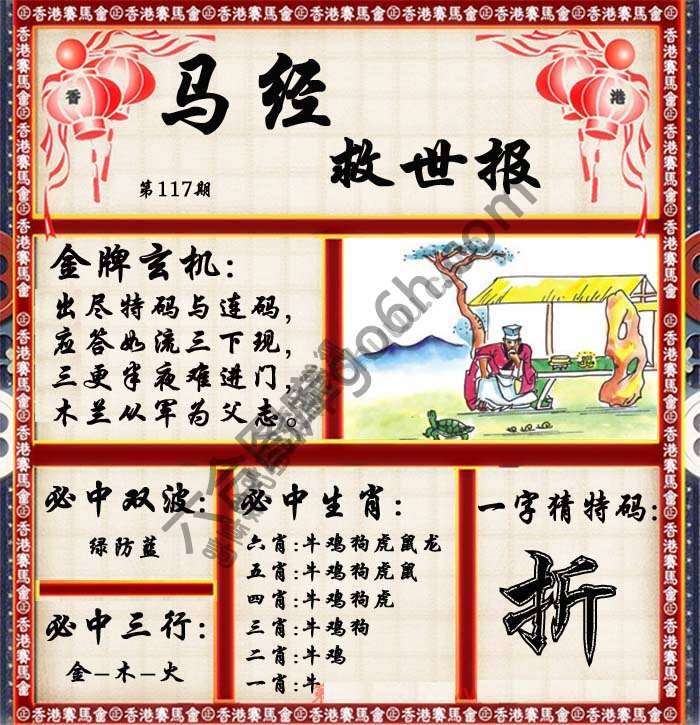 香港賽馬會
香
港
马经
救世报
第117期
金牌玄机:
出尽特码与连码,
应答如流三下现,
三更半夜难进门,
木兰从军为父志。
必中双波:
绿防蓝
必中三行:
金-木-火
必中生肖:
六肖:牛鸡狗虎鼠龙
五肖:牛鸡狗虎鼠
四肖:牛鸡狗虎
三肖:牛鸡狗
二肖:牛鸡
一肖:牛
一字猜特码:
折